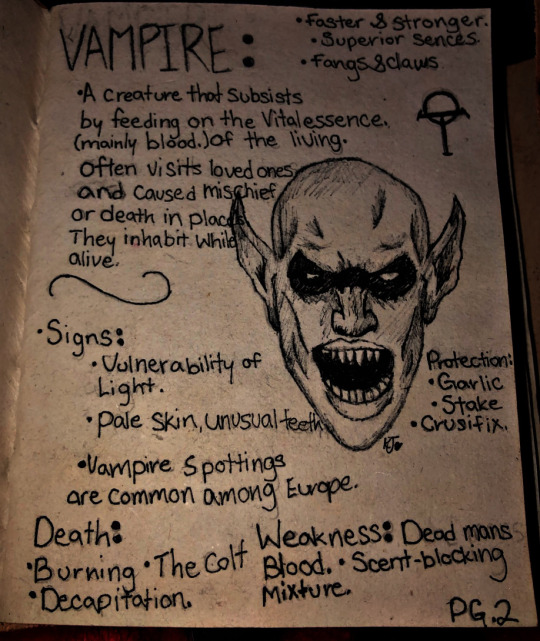 VAMPIRE:
• Faster & stronger.
• Superior sences.
• Fangs & claws
• A creature that subsists
by feeding on the Vital essence.
(mainly blood.) of the living.
often visits loved ones
and caused mischief
or death in places
They inhabit while
alive.
• Signs:
• Vulnerability of
Light.
• Pale skin, unusual teeth
Protection:
• Garlic
• Stake
• Crusifix.
• Vampire Spottings
are common among Europe.
Death:
• Burning • The Colt
• Decapitation.
Weakness: Dead mans
Blood. • Scent-blocking
Mixture.
PG.2